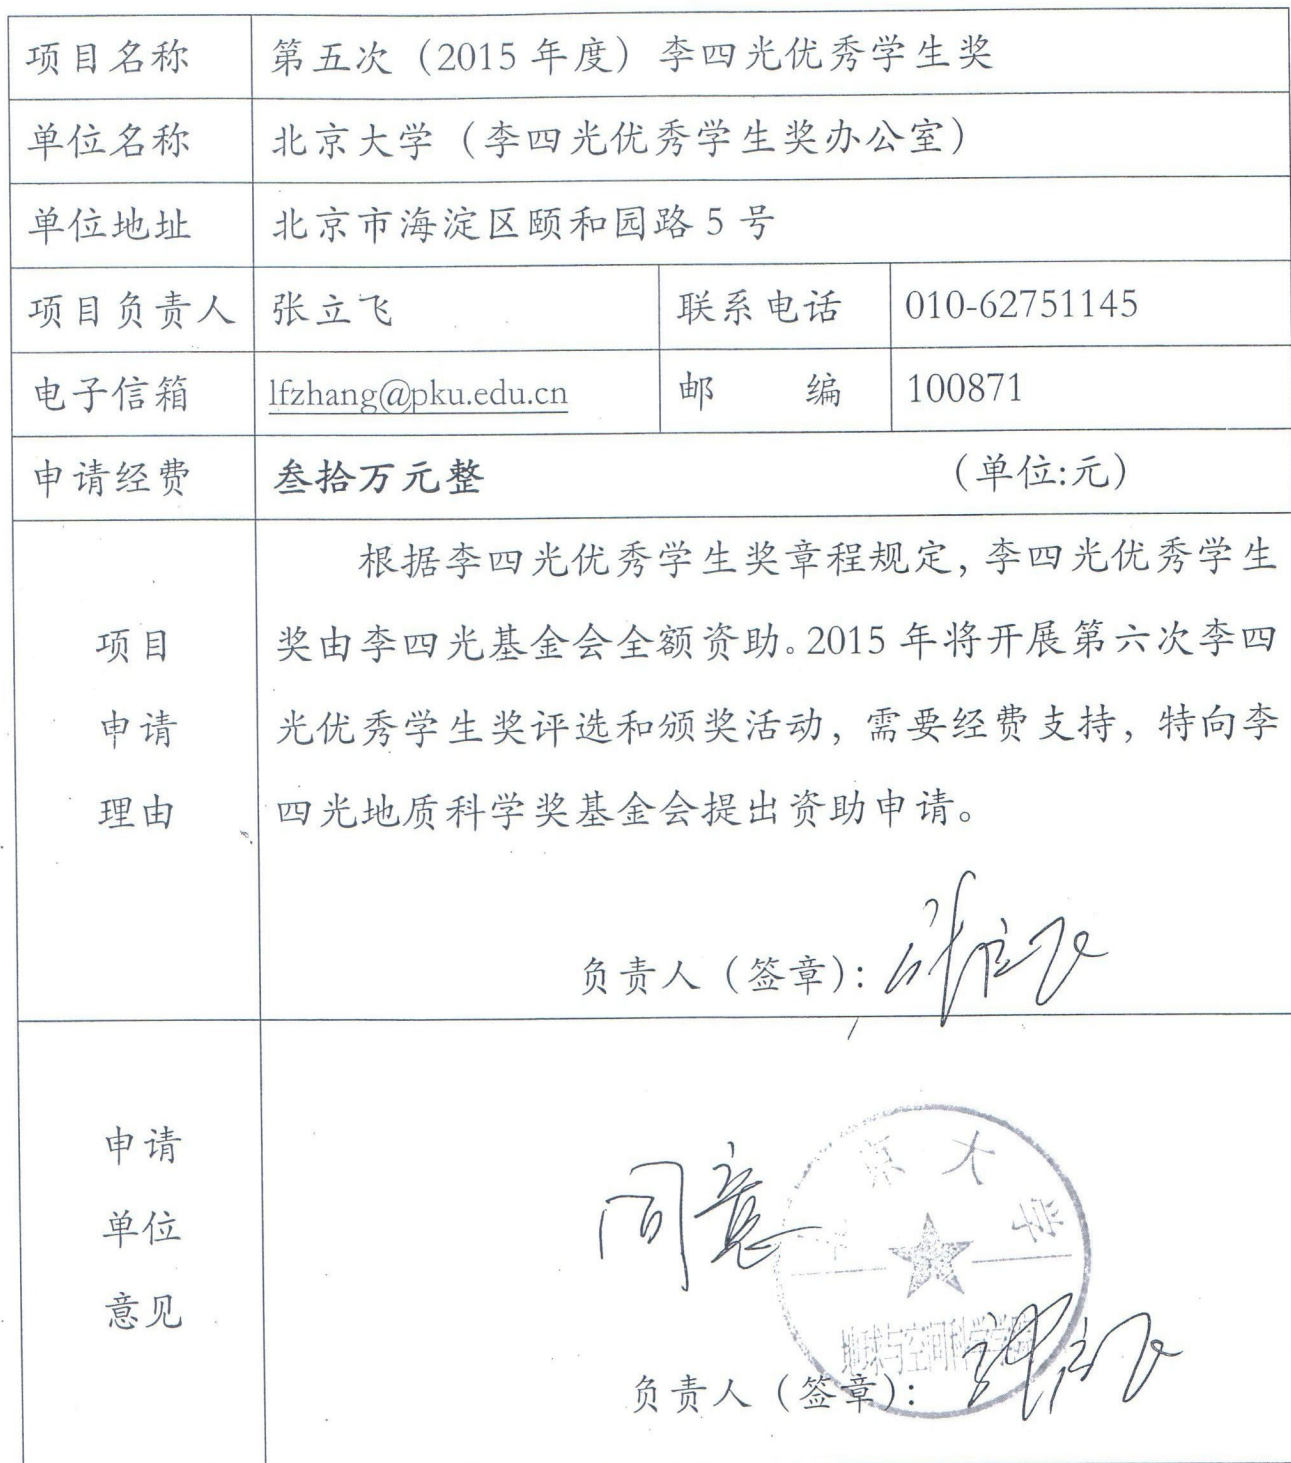 项目名称 第五次（2015 年度）李四光优秀学生奖
单位名称 北京大学（李四光优秀学生奖办公室）
单位地址 北京市海淀区颐和园路 5 号
项目负责人 张立飞 联系电话 010-62751145
电子信箱 lfzhang@pku.edu.cn 邮 编 100871
申请经费 叁拾万元整 （单位:元）
项目
申请
理由
根据李四光优秀学生奖章程规定，李四光优秀学生
奖由李四光基金会全额资助。2015 年将开展第六次李四
光优秀学生奖评选和颁奖活动，需要经费支持，特向李
四光地质科学奖基金会提出资助申请。
负责人（签章）：张立飞
申请
单位
意见
同意
北京大学
地球与空间科学学院
负责人（签章）：张立飞